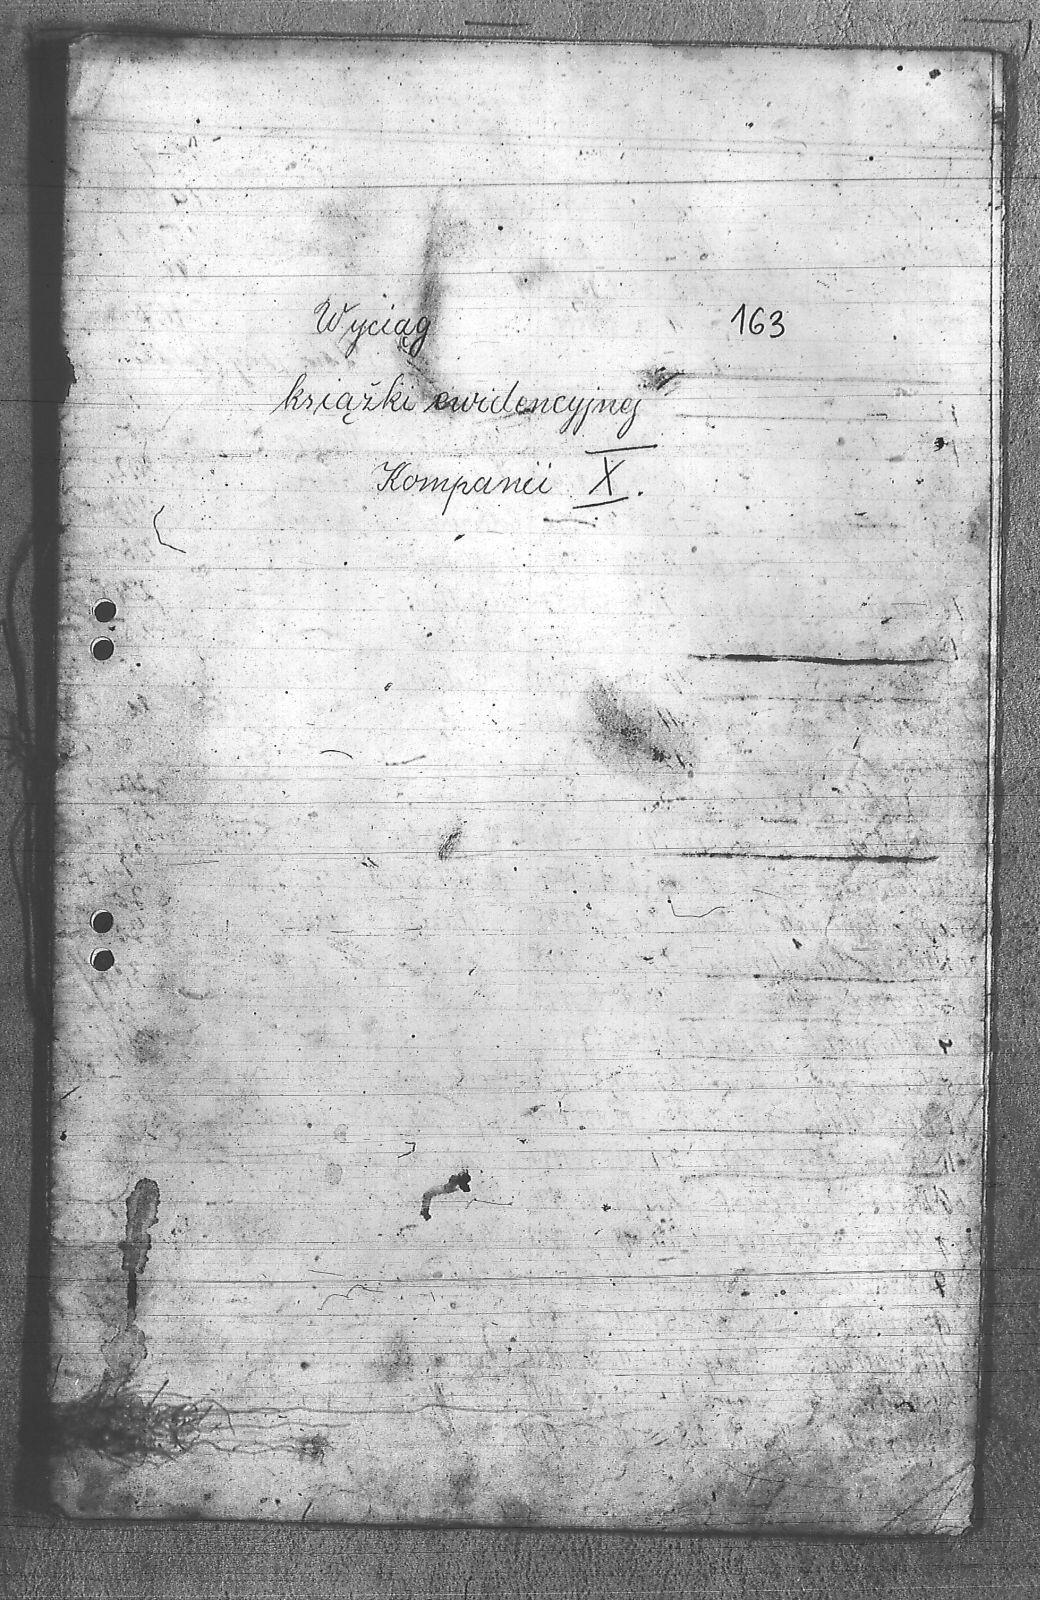 Wyciąg 163
książki ewidencyjnej
Kompanii X.